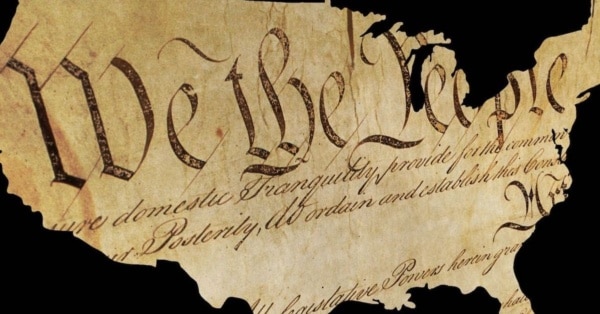 We the People
ure domestic Tranquility, provide for the common
Posterity, do ordain and establish this Cons
legislative Powers herein gra